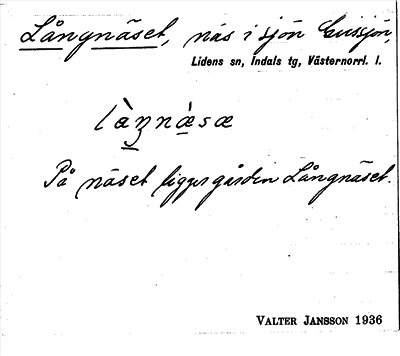 Långnäset, näs i sjön
Lidens sn, Indals tg, Västernorrl. l.
På näset ligger gården Långnäset.
VALTER JANSSON 1936